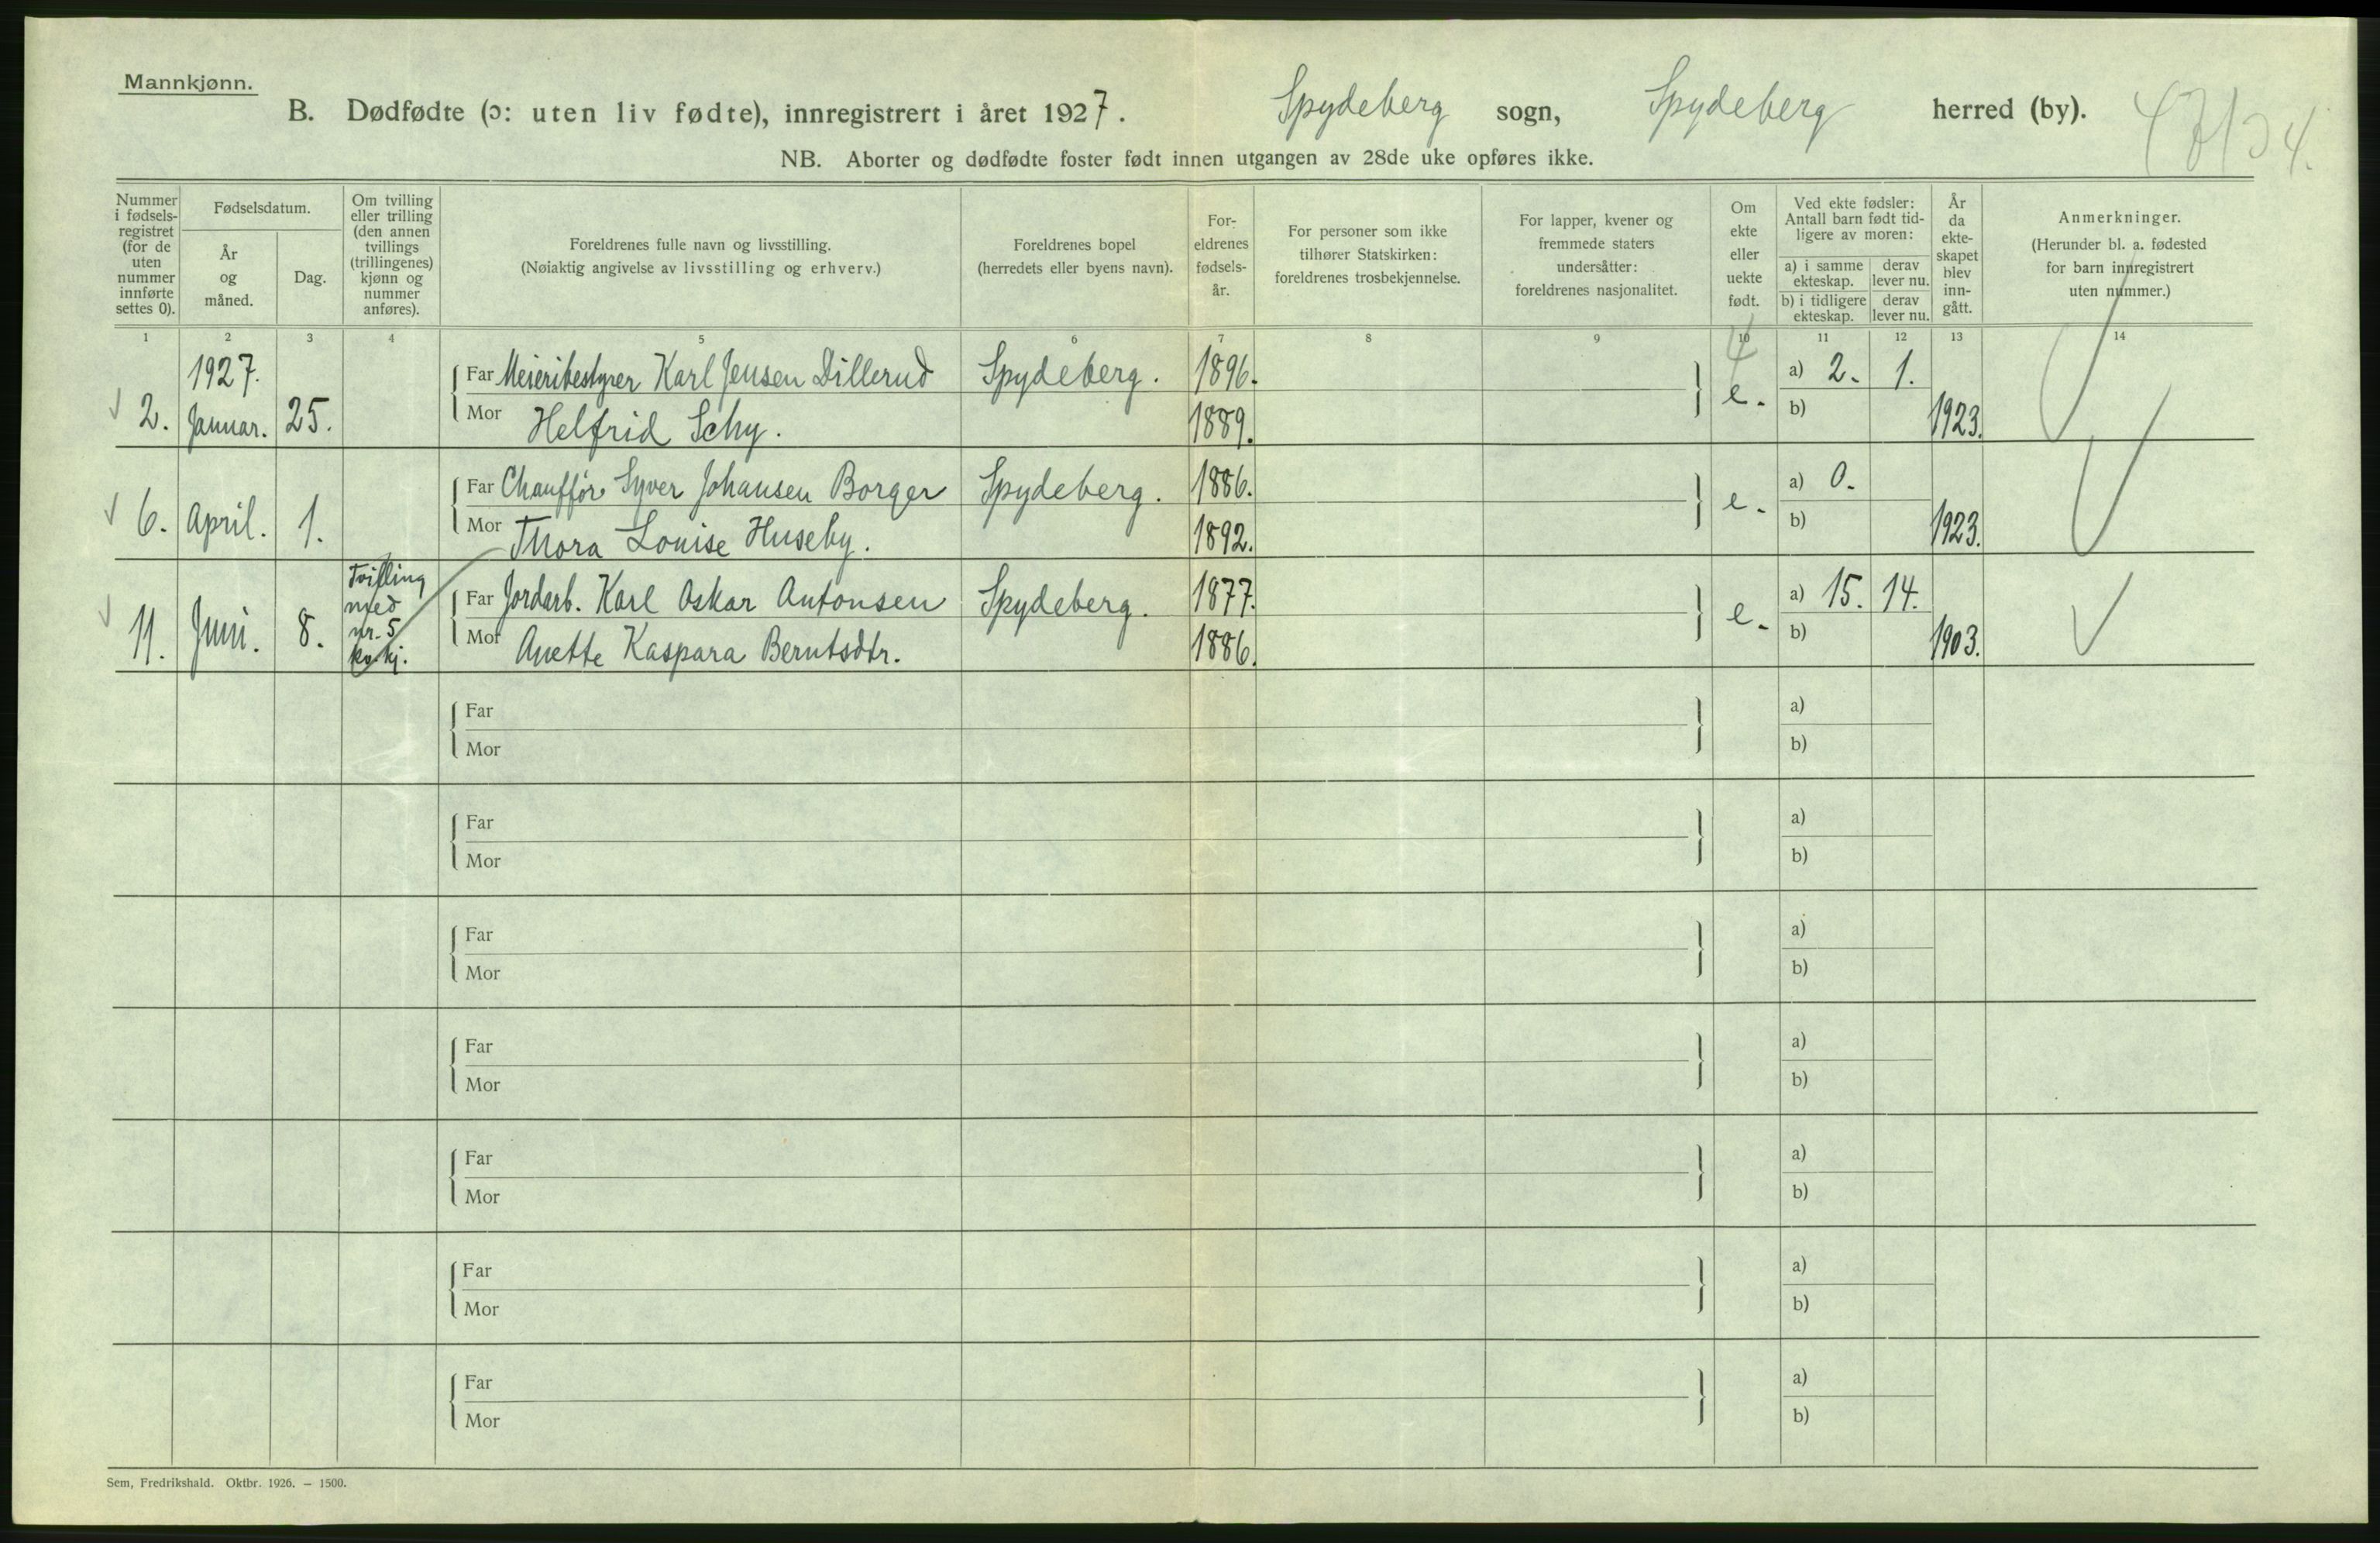 Mannkjønn.
B. Dødfødte (ɔ: uten liv fødte), innregistrert i året 1927. Spydeberg sogn, Spydeberg herred (by).
NB. Aborter og dødfødte foster født innen utgangen av 28de uke opføres ikke.
Nummer i fødsels-registret (for de uten nummer innførte settes 0).
Fødselsdatum.
År og måned.
Dag.
Om tvilling eller trilling (den annen tvillings (trillingenes) kjønn og nummer anføres).
Foreldrenes fulle navn og livsstilling.
(Nøiaktig angivelse av livsstilling og erhverv.)
Foreldrenes bopel
(herredets eller byens navn).
For-eldrenes fødsels-år.
For personer som ikke tilhører Statskirken: foreldrenes trosbekjennelse.
For lapper, kvener og fremmede staters undersåtter: foreldrenes nasjonalitet.
Om ekte eller uekte født.
Ved ekte fødsler: Antall barn født tid-ligere av moren:
a) i samme ekteskap. derav lever nu.
b) i tidligere ekteskap. derav lever nu.
År da ekte-skapet blev inn-gått.
Anmerkninger.
(Herunder bl. a. fødested for barn innregistrert uten nummer.)
1 2 3 4 5 6 7 8 9 10 11 12 13 14
1927. Far Meieribestyrer Karl Jensen Dillerud Spydeberg. 1896. a) 2. 1.
2. Januar. 25. Mor Helfrid Schy. 1889. e. b) 1923.
Far Chauffør Syver Johansen Borger Spydeberg. 1886. a) 0.
6. April. 1. Mor Thora Louise Huseby. 1892. e. b) 1923.
Tvilling med nr. 5 kv.kj.
Far Jordarb. Karl Oskar Antonsen Spydeberg. 1877. a) 15. 14.
11. Juni. 8. Mor Anette Kaspara Berntsdtr. 1886. e. b) 1903.
Far a)
Mor b)
Far a)
Mor b)
Far a)
Mor b)
Far a)
Mor b)
Far a)
Mor b)
Far a)
Mor b)
Far a)
Mor b)
Sem, Fredrikshald. Oktbr. 1926. – 1500.